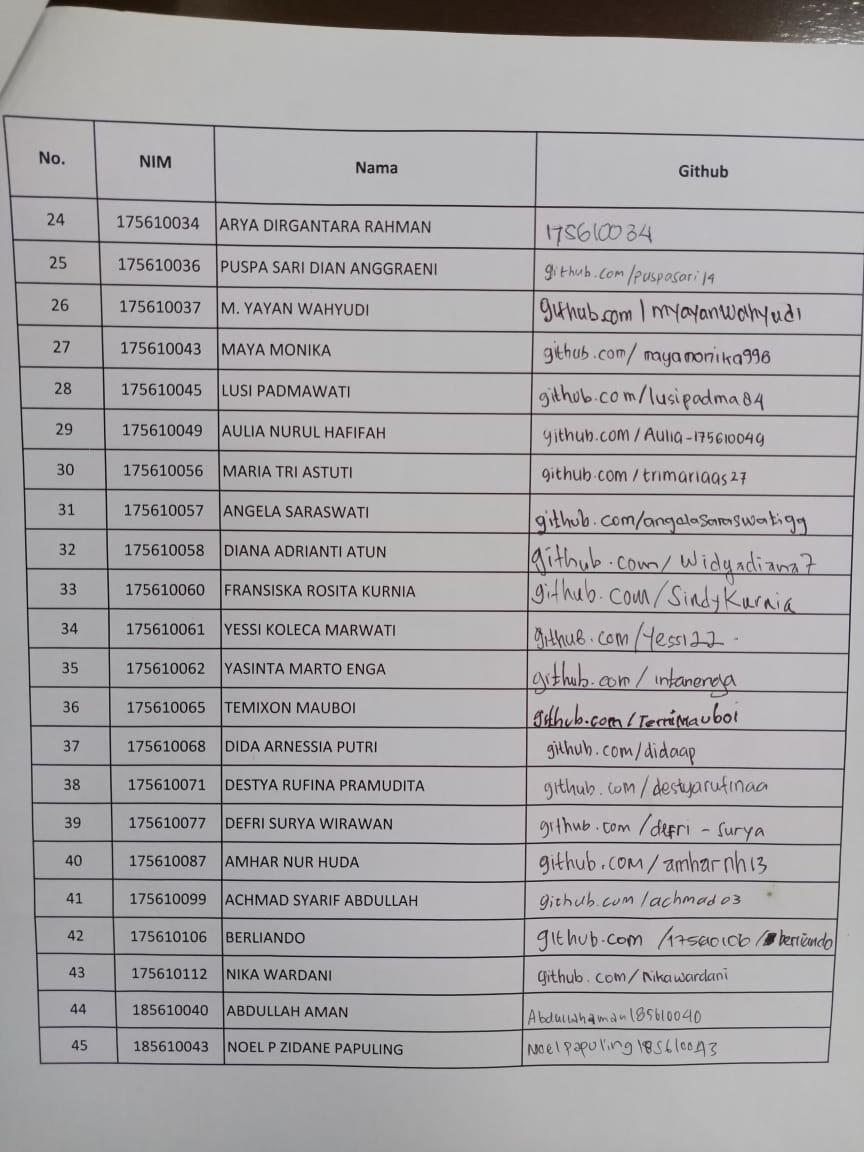 No. NIM Nama Github
24 175610034 ARYA DIRGANTARA RAHMAN 175610034
25 175610036 PUSPA SARI DIAN ANGGRAENI github.com/puspasari14
26 175610037 M. YAYAN WAHYUDI github.com/myayanwahyudi
27 175610043 MAYA MONIKA github.com/mayamonika996
28 175610045 LUSI PADMAWATI github.com/lusipadma84
29 175610049 AULIA NURUL HAFIFAH github.com/Aulia-175610049
30 175610056 MARIA TRI ASTUTI github.com/trimariaas27
31 175610057 ANGELA SARASWATI github.com/angelasaraswatigg
32 175610058 DIANA ADRIANTI ATUN github.com/Widyadiana7
33 175610060 FRANSISKA ROSITA KURNIA github.com/SindyKurnia
34 175610061 YESSI KOLECA MARWATI github.com/Yessi22
35 175610062 YASINTA MARTO ENGA github.com/intanenga
36 175610065 TEMIXON MAUBOI github.com/TemiMauboi
37 175610068 DIDA ARNESSIA PUTRI github.com/didaap
38 175610071 DESTYA RUFINA PRAMUDITA github.com/destyarufinaa
39 175610077 DEFRI SURYA WIRAWAN github.com/defri-surya
40 175610087 AMHAR NUR HUDA github.com/amharnh13
41 175610099 ACHMAD SYARIF ABDULLAH github.com/achmad03
42 175610106 BERLIANDO github.com /175610106/berliando
43 175610112 NIKA WARDANI github.com/Nikawardani
44 185610040 ABDULLAH AMAN Abdullahaman185610040
45 185610043 NOEL P ZIDANE PAPULING Noelpapuling185610043